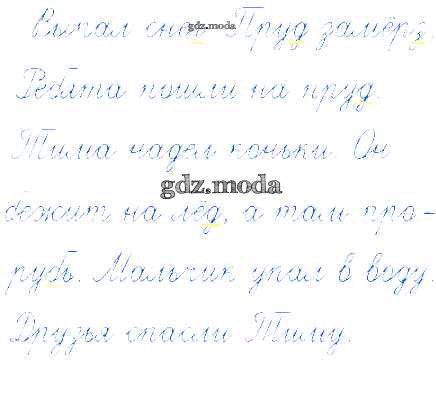 Выпал снег. Пруд замёрз.
gdz.moda
Ребята пошли на пруд.
Тима надел коньки. Он
gdz.moda
бежит на лёд, а там про-
рубь. Мальчик упал в воду.
Друзья спасли Тиму.